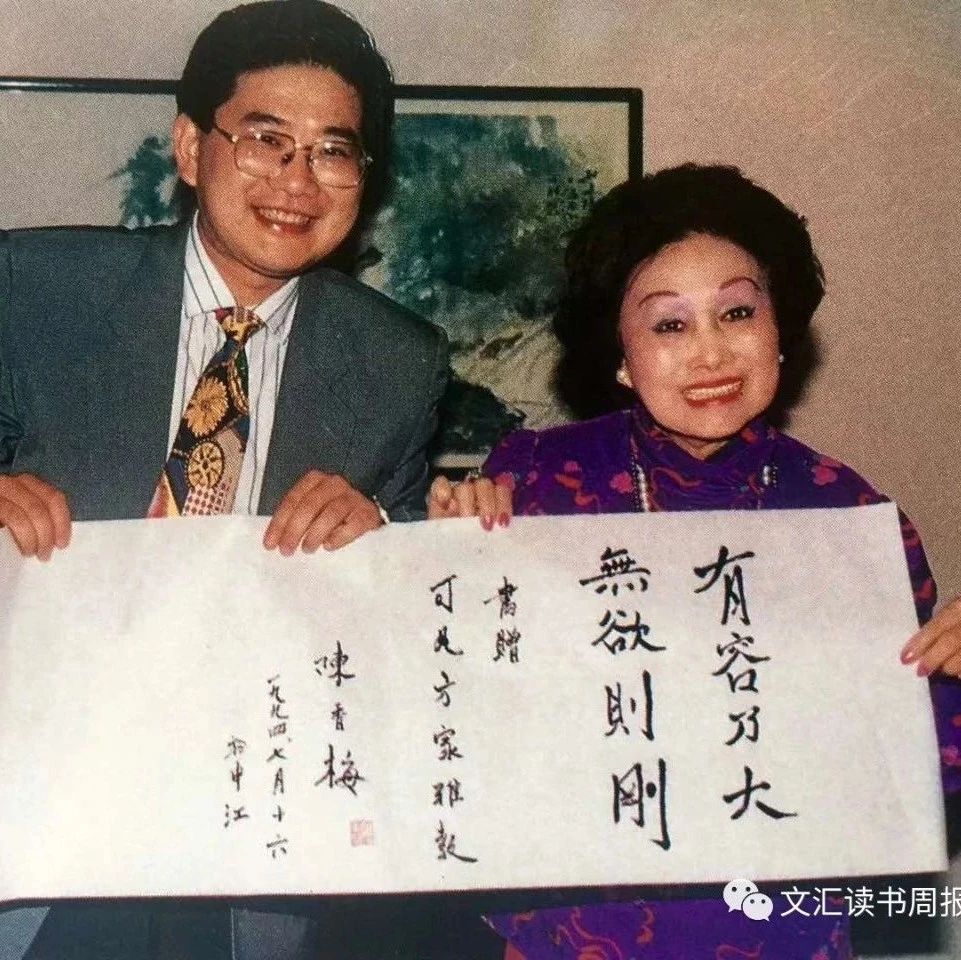 有容乃大
無欲則剛
書贈
可凡方家雅教
陳香梅
一九九四.七月十六
於申江
文汇读书周报